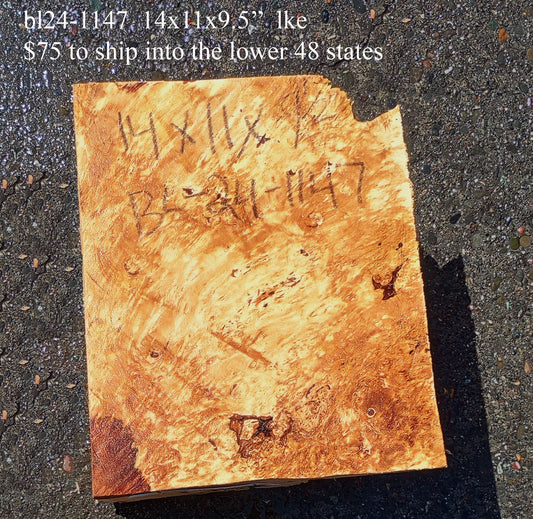 bl24-1147  14x11x9.5”  lke
$75 to ship into the lower 48 states
14x11x
BL-24-1147